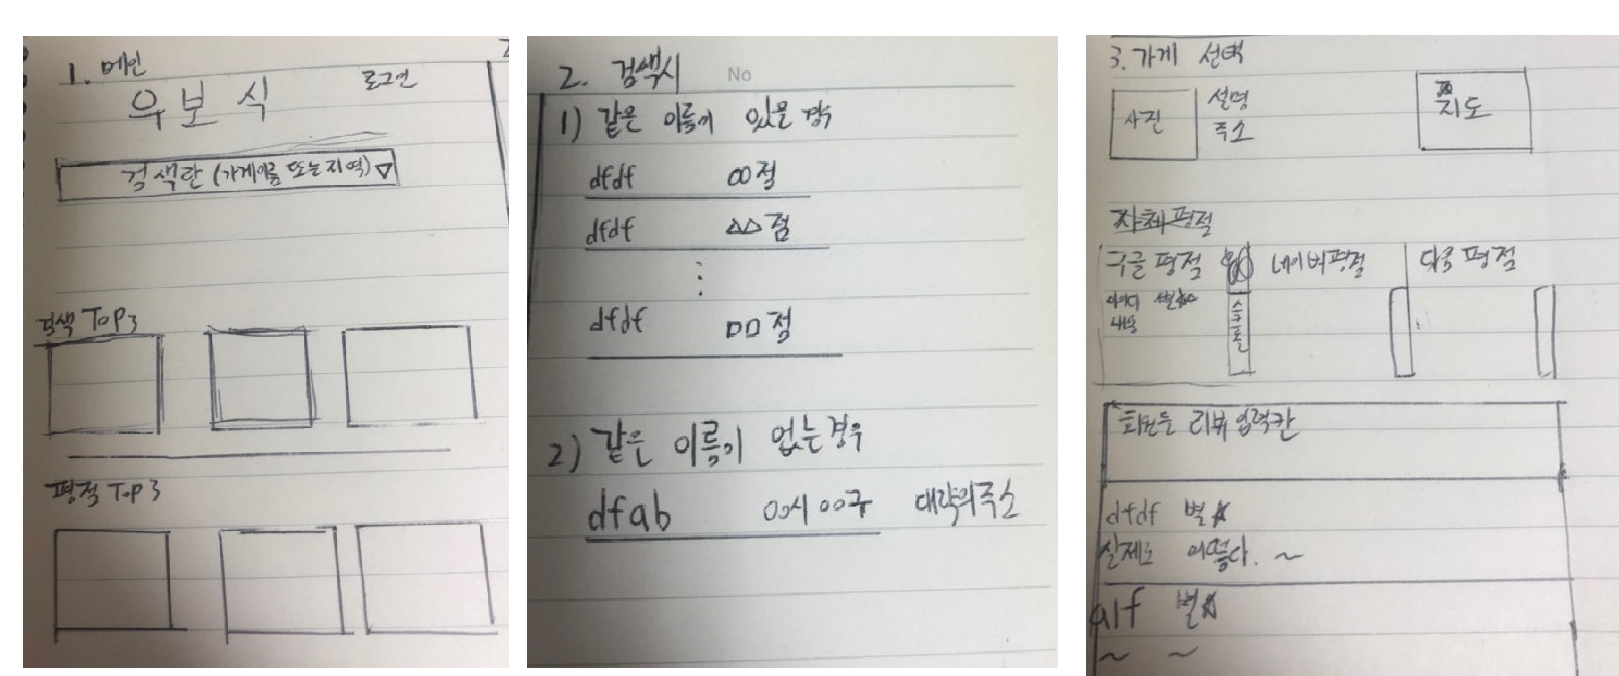 1. 메인
우보식 로그인
검색란 (가게이름 또는 지역) ▽
검색 Top3
평점 Top3
2. 검색시
No
1) 같은 이름이 있을 경우
dfdf OO점
dfdf △△점
⋮
dfdf □□점
2) 같은 이름이 없는 경우
dfab OO시 OO구 대략의 주소
3. 가게 선택
사진 설명 지도
주소
자체평점
구글 평점 네이버평점 다음 평점
아이디
내용
스크롤
회원들 리뷰 입력칸
dfdf 별☆
실제로 어떻다. ~
alf 별☆
~ ~